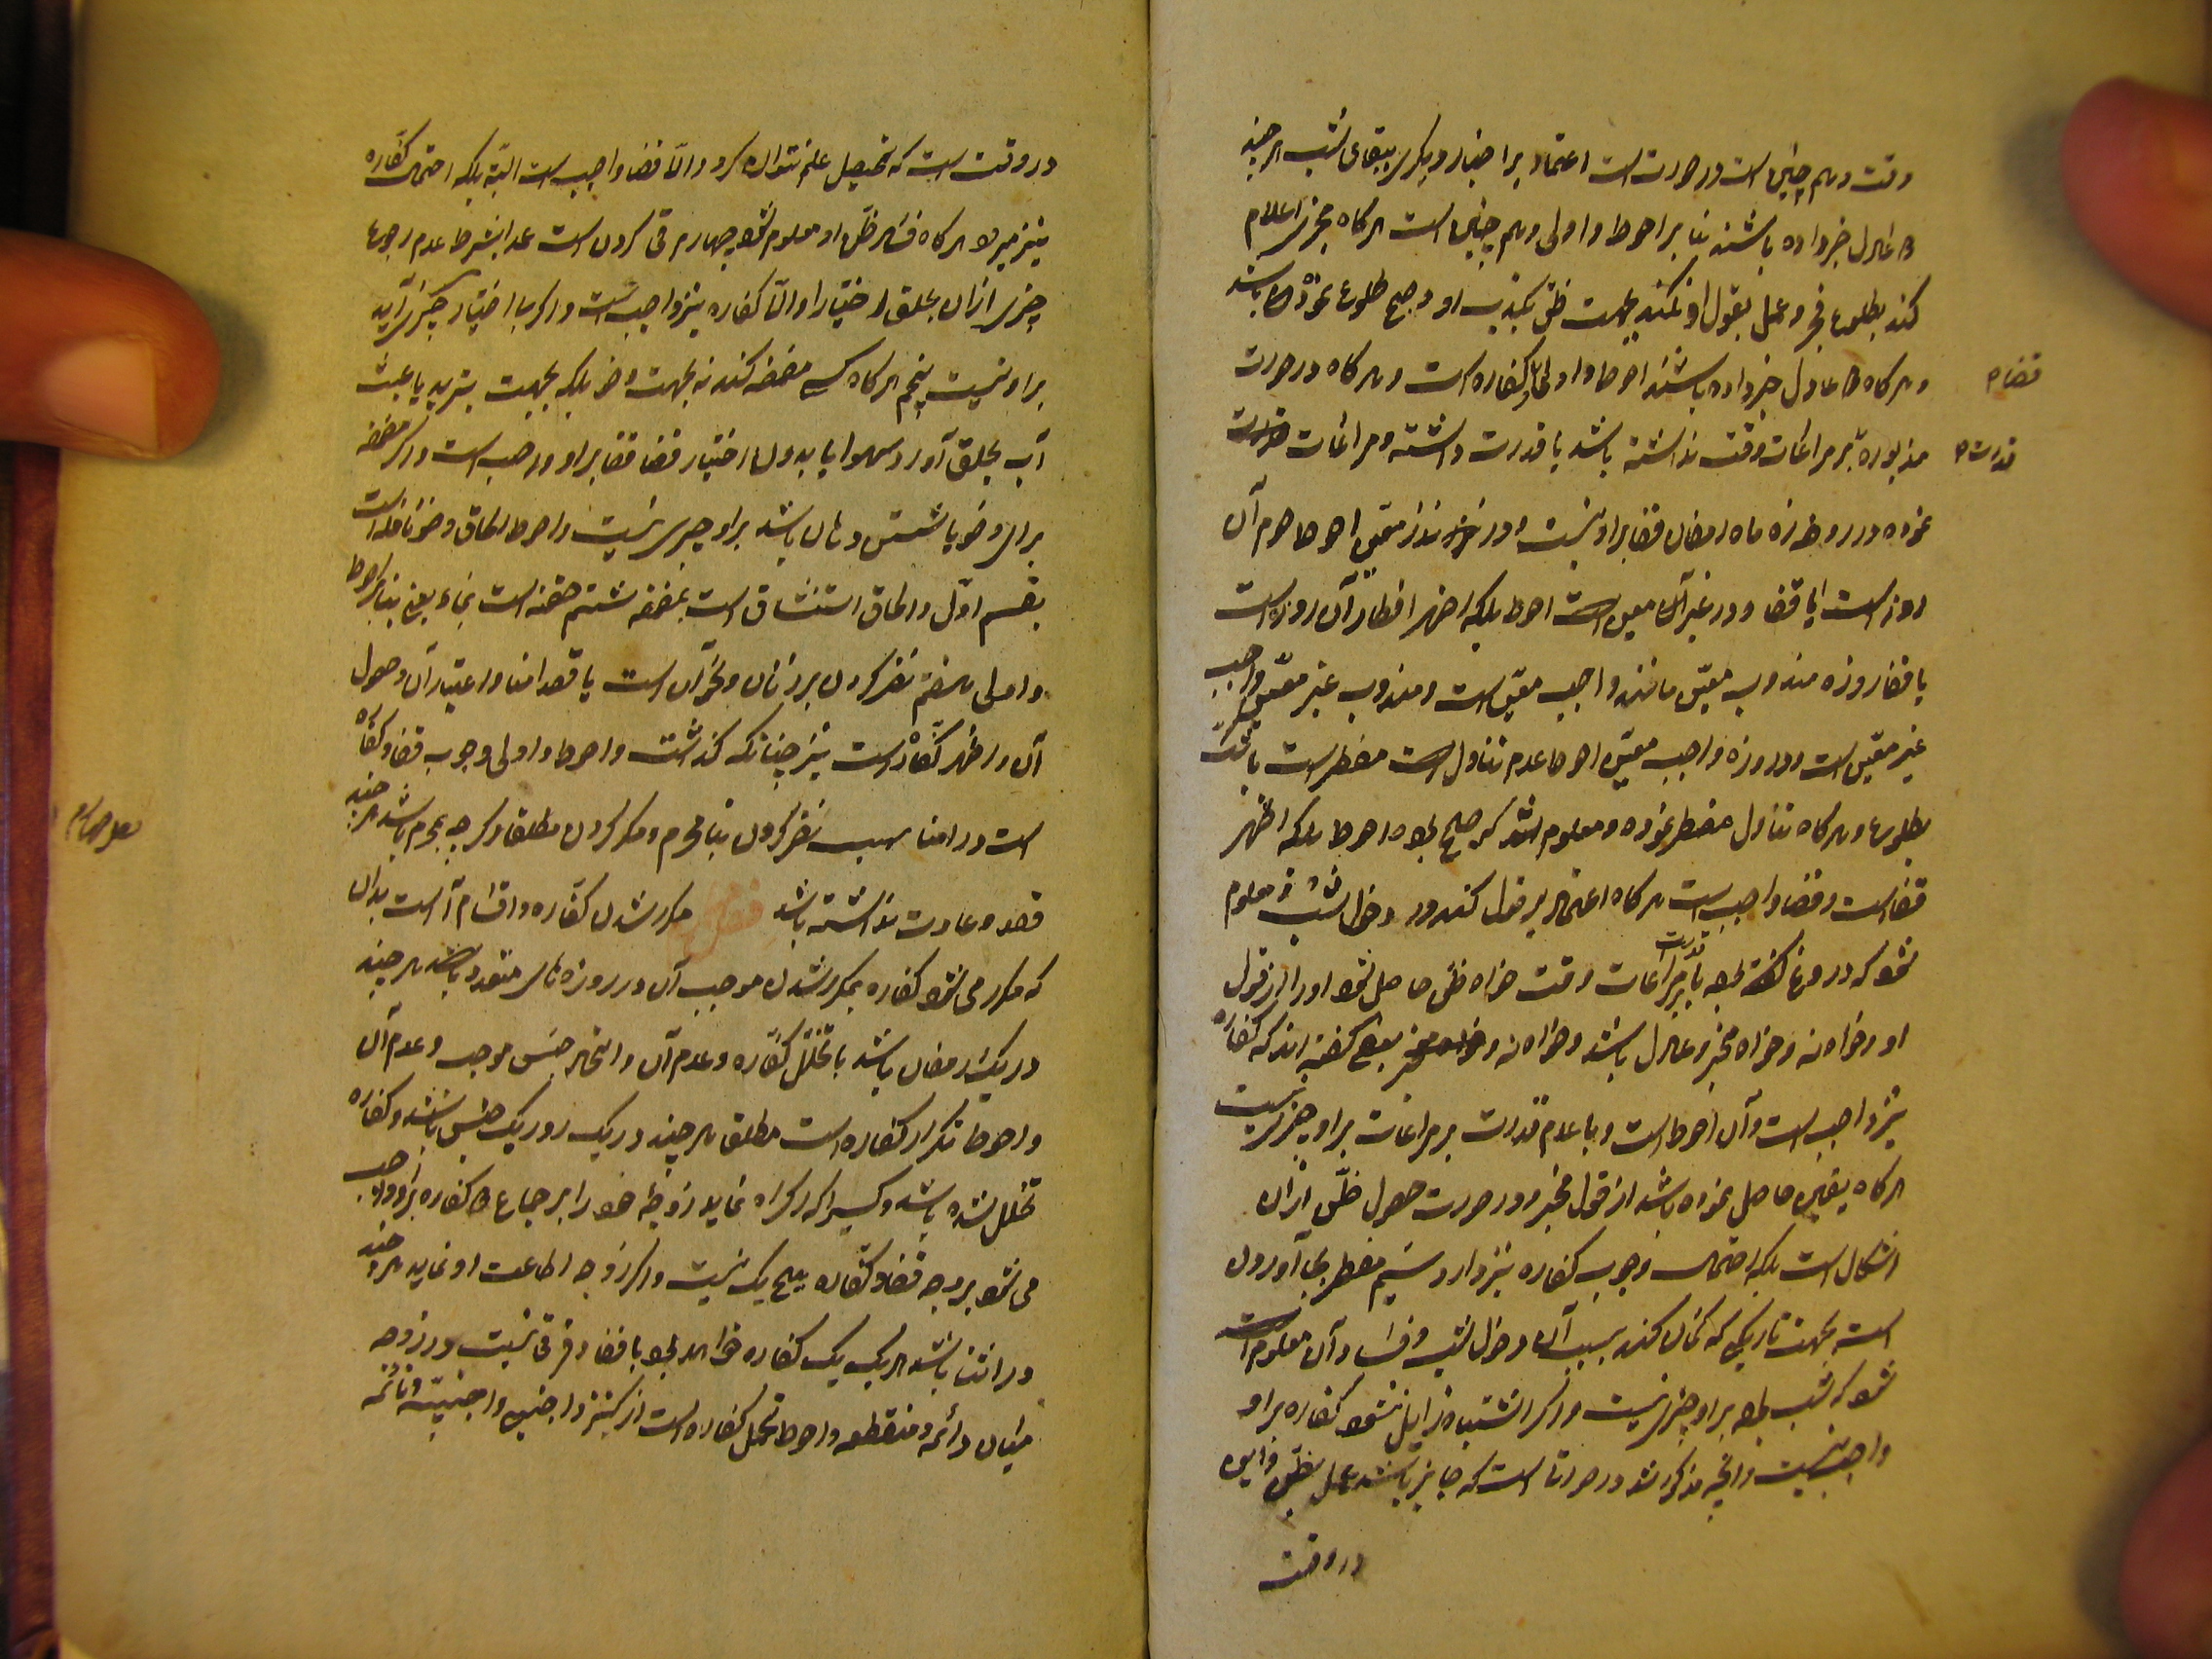 وقت و همچنین است در صورت است اعتماد بر اخبار دیگری ببقای شب هر چند
عادل خبر داده باشند بنا بر احوط و اولی و همچنین است هرگاه مخبری اعلام
کند بطلوع فجر و عمل بقول او نکند بجهت ظن بکذب او و صبح طلوع نموده باشد
و هرگاه عادل خبر داده باشند احوط و اولی کفاره است و هرگاه در صورت
قضا م
مذبوره بر مراعات وقت نداشته باشد یا قدرت داشته و مراعات
قدرت م
نموده در روزه ماه رمضان قضا بر او نیست و در نذر معین احوط صوم آن
روز است با قضا و در غیر آن معین است احوط بلکه اظهر افطار آن روز است
با قضا روزه مندوب معین مانند واجب معین است و مندوب غیر معین واجب
غیر معین است و در روزه واجب معین احوط عدم تناول است مفطر است با شک
بطلوع و هرگاه تناول مفطر نموده و معلوم شد که صبح بوده احوط بلکه اظهر
قضاست و قضا واجب است هرگاه اعتماد بر قول کند در دخول شب و معلوم
شود که دروغ گفته بود با قدرت بر مراعات وقت خواه ظن حاصل شود او را از قول
او و خواه نه و خواه مخبر عادل باشد و خواه نه و بعضی گفته‌اند که کفاره
نیز واجب است و آن احوط است و با عدم قدرت بر مراعات بر او چیزی نیست
هرگاه یقین حاصل نموده باشد از قول مخبر و در صورت حصول ظن از آن
اشکال است بلکه احتمال وجوب کفاره نیز دارد سیم مفطر بجا آوردن
است بجهت تاریکی که گمان کند بسبب آن دخول شب و فساد آن معلوم است
شود که شب بوده بر او چیزی نیست و اگر اشتباه زایل نشود کفاره بر او
واجب نیست و آنچه مذکور شد در صورتی است که جایز باشد عمل بظن و این
در وقت
در وقت است که تحصیل علم نتوان کرد و الا قضا واجب است البته بلکه احتمال کفاره
نیز میرود هرگاه فساد ظن او معلوم شود چهارم قی کردن است عمدا بشرط عدم رجوع
چیزی از آن بحلق اختیارا و الا کفاره نیز واجب است و اگر بی اختیار چیزی آید
بر او نیست پنجم هرگاه کسی مضمضه کند نه بجهت وضو بلکه بجهت تبرید یا عبث
آب بحلق آورد سهوا یا بدون اختیار قضا بر او واجب است و اگر مضمضه
برای وضو یا شستن دهان باشد بر او چیزی نیست و احوط الحاق وضو نافله است
بقسم اول و الحاق استنشاق است بمضمضه ششم حقنه است بمایع بنا بر احوط
و اولی هفتم نظر کردن بر زنان و نحو آن است با قصد امنا و اعتبار آن و حصول
آن و اظهر کفاره است نیز چنانکه گذشت و احوط و اولی وجوب قضا و کفاره
است در امنا بسبب نظر کردن بنا محرم و مکرر کردن مطلقا و گرچه بمحرم باشد هر چند
قصد و عادت نداشته باشد مکرر شدن کفاره و اقسام آن است بدان
که مکرر می شود کفاره بمکرر شدن موجب آن در روزه های متعدد باشد هر چند
در یک رمضان باشد با تخلل کفاره و عدم آن و اتحاد جنس موجب و عدم آن
و احوط تکرار کفاره است مطلقا هر چند در یک روز یک جنس باشد و کفاره
تخلل نشده باشد و کسی را که اکراه نماید زوجه خود را بر جماع کفاره بر او واجب
می شود بر وجه قضا و کفاره هیچ یک نیست و اگر زوجه اطاعت او نماید هر چند
در اثنا باشد هر یک یک کفاره خواهد بود با قضا و فرقی نیست در زوجه
میان دائمه و منقطعه و احوط تحمل کفاره است از کنیز و اجنبی و اجنبیه و نائمه